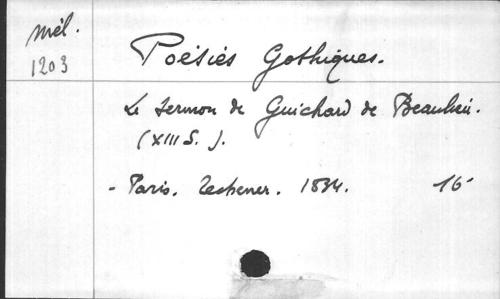 Mél.
1203
Poésies Gothiques.
Le Sermon de Guichard de Beaulieu.
(XIII S.).
- Paris. Techener. 1834. 16°